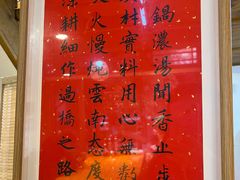 鍋濃湯聞香止步
材實料用心無數
火慢炖雲南态度
深耕細作過橋之路